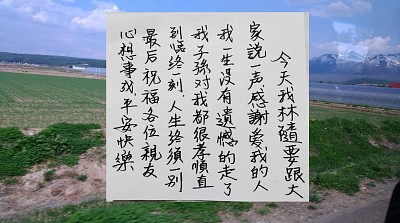 今天我林隨要跟大
家説一声感謝愛我的人
我一生没有遺憾的走了
我子孫对我都很孝順直
到临终一刻人生终须一别
最后祝福各位親友
心想事成平安快樂